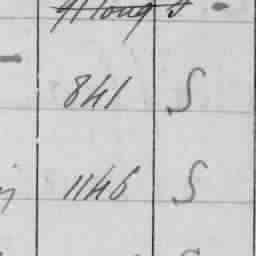 841 S
1146 S